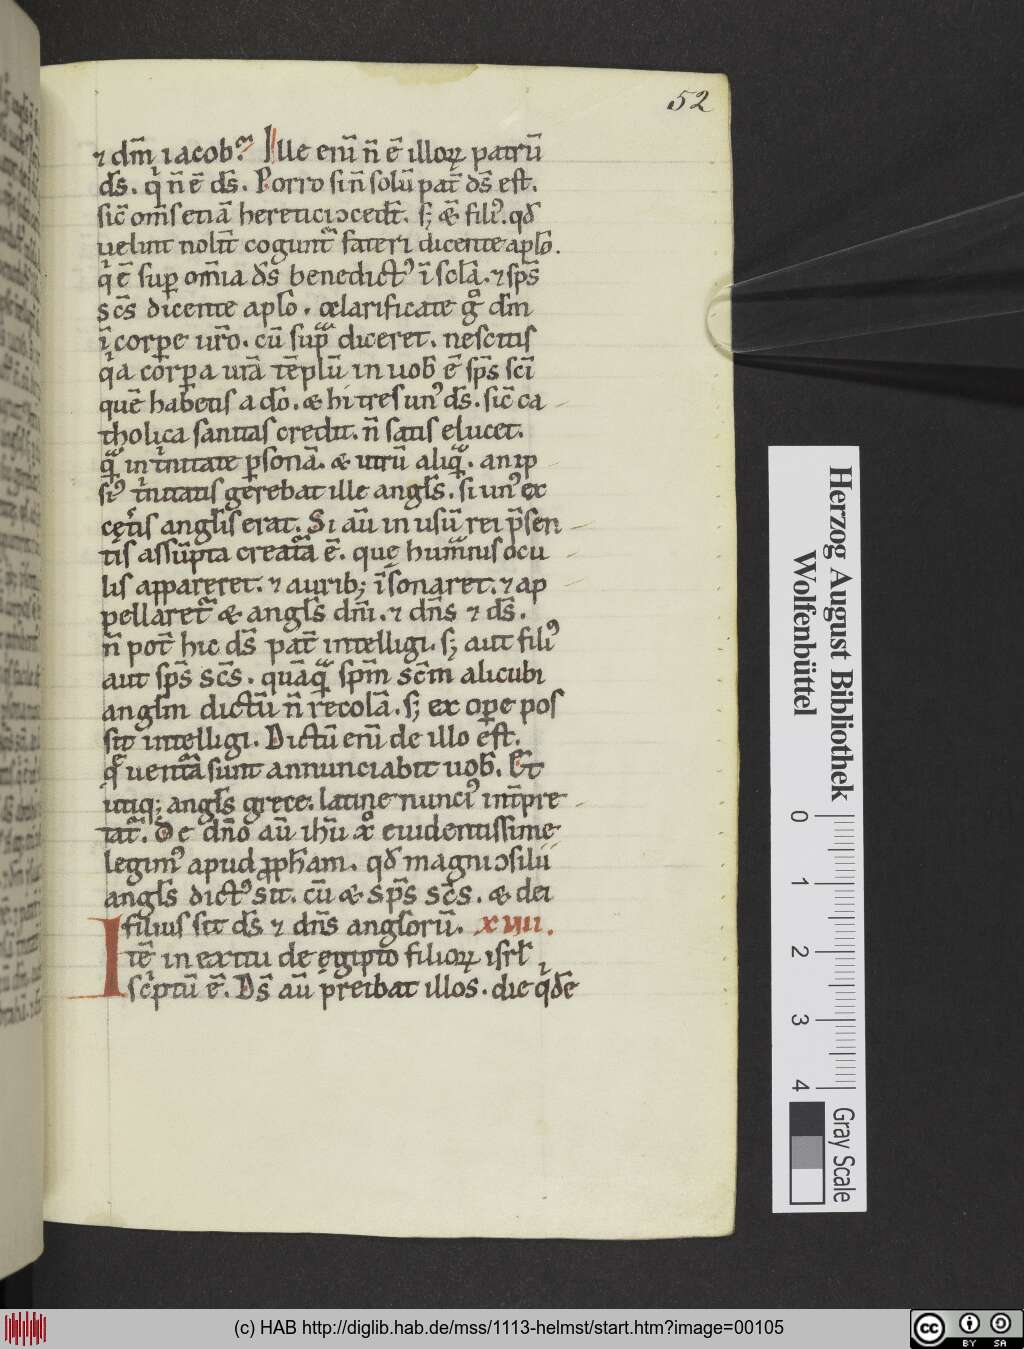 52
⁊ dm̄ iacob? Ille eni̅ n̄ ē illoꝝ patrū
ds̄. q̇ n̄ ē ds̄. Porro si n̄ solū pat̄ ds̄ est.
sic̄ om̄s etiā heretici ↄcedt̄. s; & fili᾽. qđ
uelint nolīt cogunt̄ fateri dicente aplō.
q̇ ē suꝑ om̄ia ds̄ benedict᾽ ī sclā. ⁊ sps̄
sc̄s dicente aplō. clarificate gͦ dm̄
ī corpe ur̄o. cū supͣ diceret. nescitis
qͥa corꝑa ur̄a tēplū in uob̄ ē sps̄ sc̄i
quē habetis a dō. & hi tres un᾽ ds̄. sic̄ ca
tholica sanitas credit. n̄ satis elucet.
qͣ in tͥnitate ꝑsonā. & utrū aliqͣ. an ip
si᾽ tͥnitatis gerebat ille angl̄s. si un᾽ ex
cetͥs angl̄is erat. Si aū in usū rei p̄sen
tis assūpta creatͣa ē. que humͣnis ocu
lis appareret. ⁊ aurib; īsonaret. ⁊ ap
pellaret̄ & angl̄s dn̄i. ⁊ dn̄s ⁊ ds̄.
n̄ pot̄ hic ds̄ pat̄ intelligi. s; aut fili᾽
aut sps̄ sc̄s. quāqͣ spm̄ sc̄m alicubi
anglm̄ dictū n̄ recolā. s; ex oꝑe pos
sit intelligi. Dictū eni̅ de illo est.
q̄ uentͣa sunt annunciabit uob̄. Et
utiq; angl̄s grece. latine nunci᾽ int̄pre
tat̄. De dn̄o aū ih̄u xͦ euidentissime
legim᾽ apud ꝓph̄am. qđ magni ↄsilii
angl̄s dict᾽ sit. cū & sps̄ sc̄s. & dei
filius sit ds̄ ⁊ dn̄s anglorū. xviii.
Itē in exitu de egipto filioꝝ isrl̄
scͥptū ē. Ds̄ aū preibat illos. die qͥde
Herzog August Bibliothek
Wolfenbüttel
0 1 2 3 4
Gray Scale
(c) HAB http://diglib.hab.de/mss/1113-helmst/start.htm?image=00105
cc BY SA